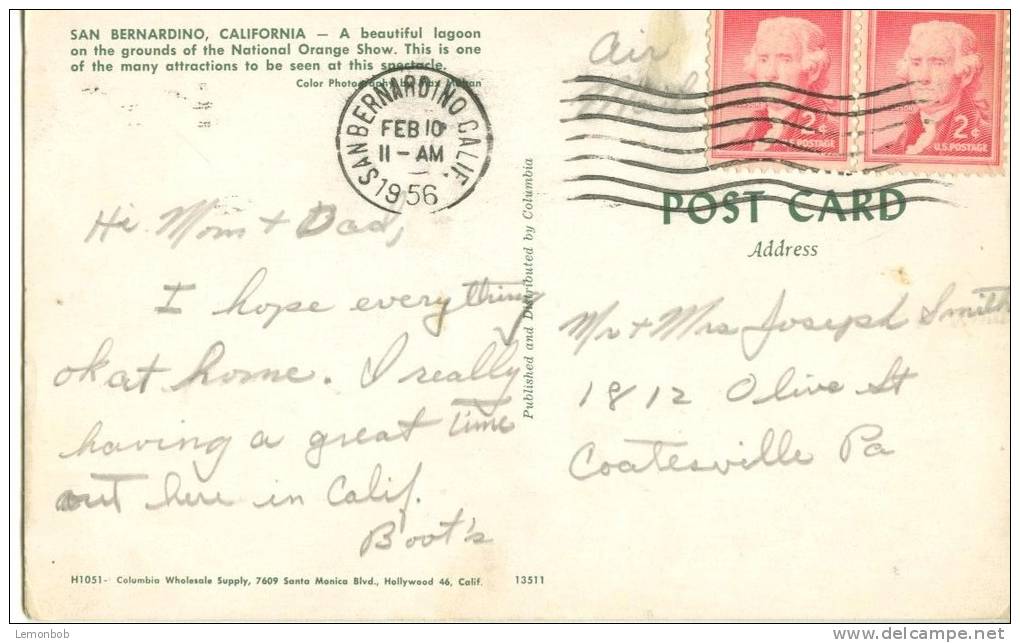 SAN BERNARDINO, CALIFORNIA — A beautiful lagoon
on the grounds of the National Orange Show. This is one
of the many attractions to be seen at this spectacle.
Color Photography by Max Mahan
SAN BERNARDINO CALIF.
FEB 10
11 - AM
1956
Hi Mom + Dad,
I hope everything
ok at home. I really
having a great time
out here in Calif.
Boot's
H1051- Columbia Wholesale Supply, 7609 Santa Monica Blvd., Hollywood 46, Calif.
13511
Published and Distributed by Columbia
Air
Mail
2¢
U.S. POSTAGE
2¢
U.S. POSTAGE
POST CARD
Address
Mr + Mrs Joseph Smith
1812 Olive St
Coatesville Pa
Lemonbob
www.delcampe.net